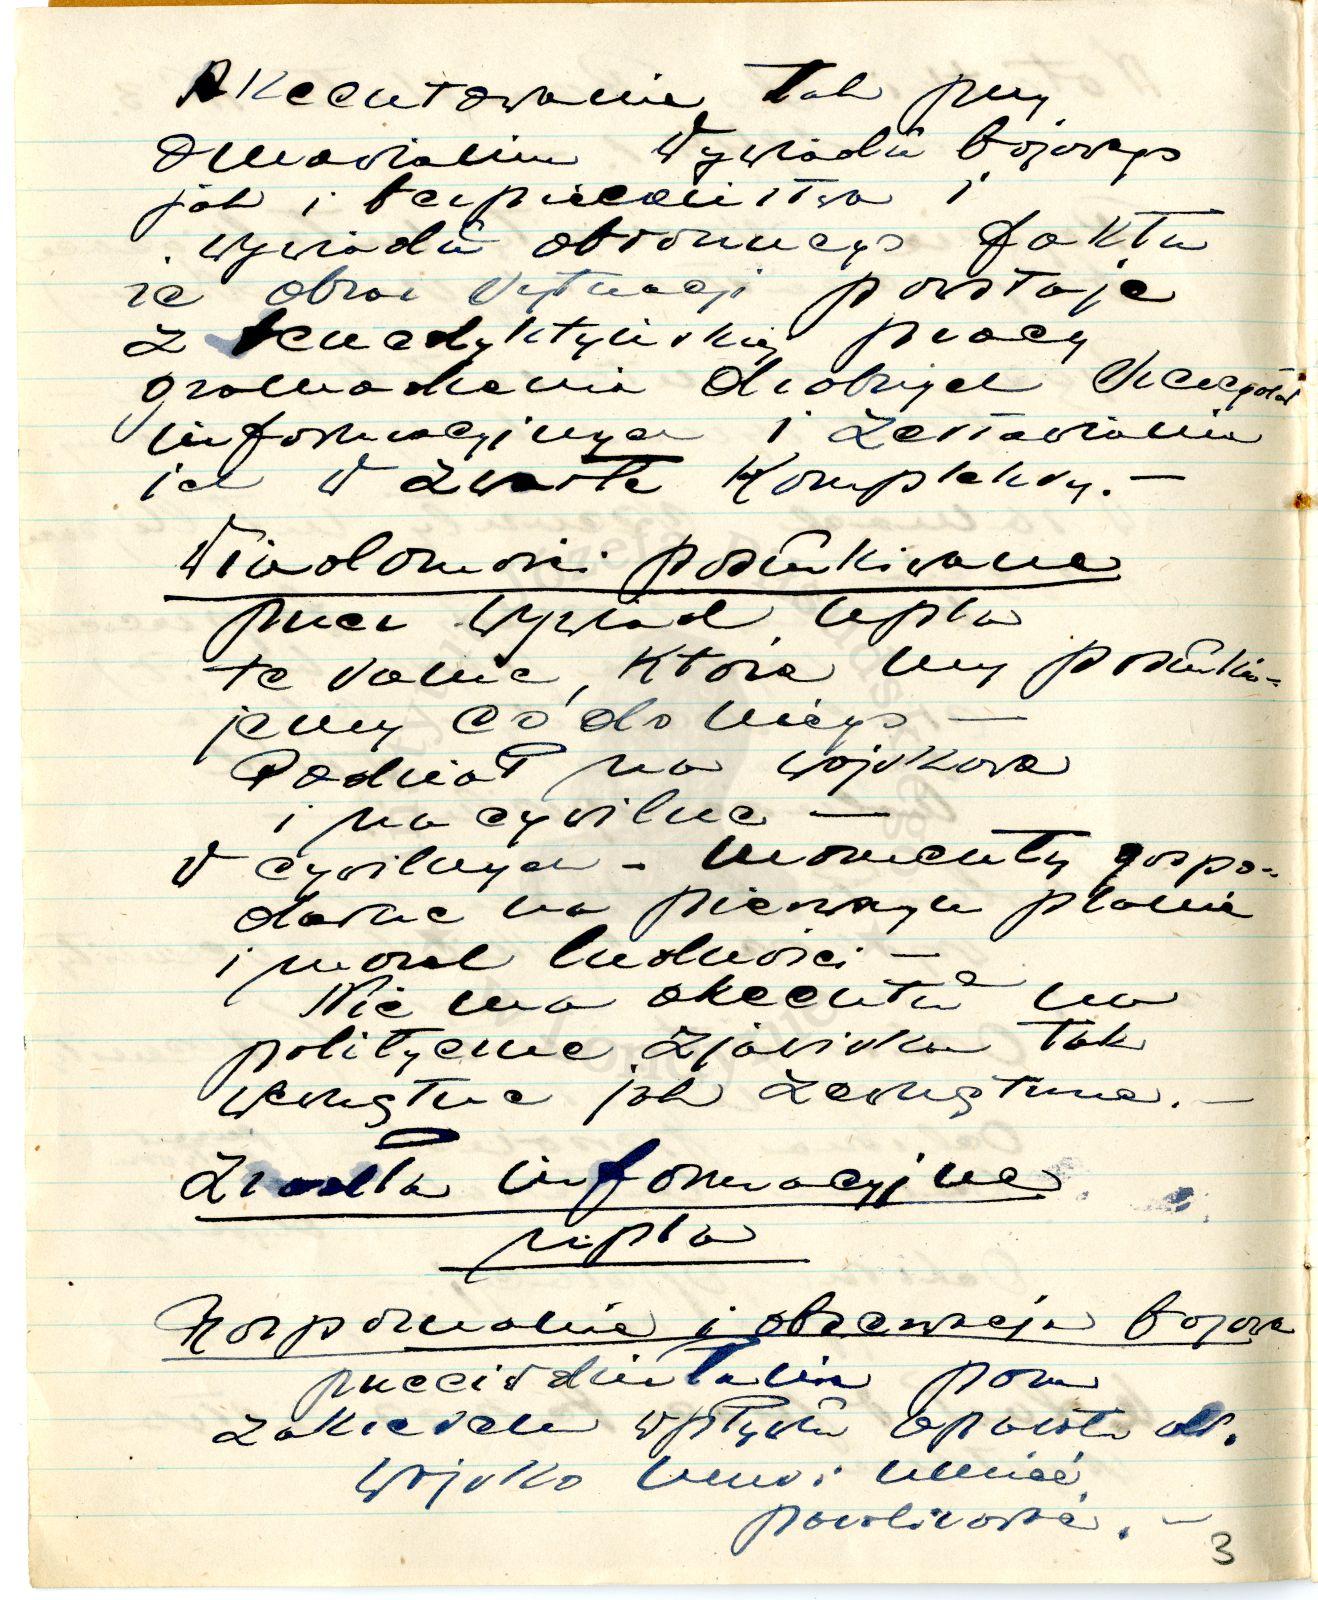 Akcentowanie tak przy
omawianiu wywiadu bojowego
jak i bezpieczeństwa i
wywiadu obronnego faktu
że obraz sytuacji powstaje
z benedyktyńskiej pracy
gromadzenia drobnych szczegółów
informacyjnych i zestawiania
ich w zwarte kompleksy. —
Wiadomości poszukiwane
przez wywiad npla
te same, które my poszuku-
jemy co do niego —
Podział na wojskowe
i na cywilne —
W cywilnych - momenty gospo-
darcze na pierwszym planie
i morale ludności —
Nie ma akcentu na
polityczne zjawiska tak
wewnętrzne jak zewnętrzne. —
Źródła informacyjne
npla
Rozpoznanie i obserwacja bojowa
przeciwdziałanie poza
zakresem wpływu aparatu off.
Wojsko musi umieć